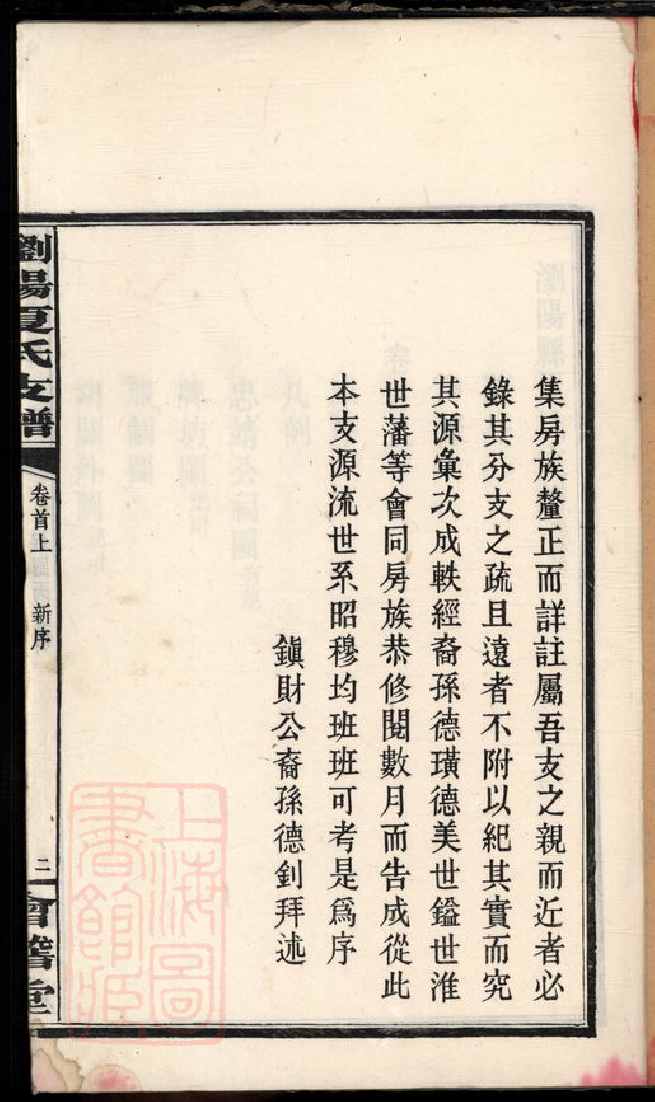 集房族釐正而詳註屬吾支之親而近者必
錄其分支之疏且遠者不附以紀其實而究
其源彙次成軼經裔孫德璜德美世鎰世淮
世藩等會同房族恭修閱數月而告成從此
本支源流世系昭穆均班班可考是爲序
鎭財公裔孫德釗拜述
瀏陽夏氏支譜
卷首上
新序
二
會籍堂
上海圖
書館藏